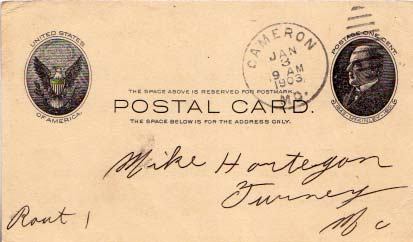 UNITED STATES
OF AMERICA.
CAMERON
JAN
3
9 AM
1903.
MO.
POSTAGE ONE CENT.
THE SPACE ABOVE IS RESERVED FOR POSTMARK.
POSTAL CARD.
THE SPACE BELOW IS FOR THE ADDRESS ONLY.
Mike Hortegon
Turney
Rout 1
Mo